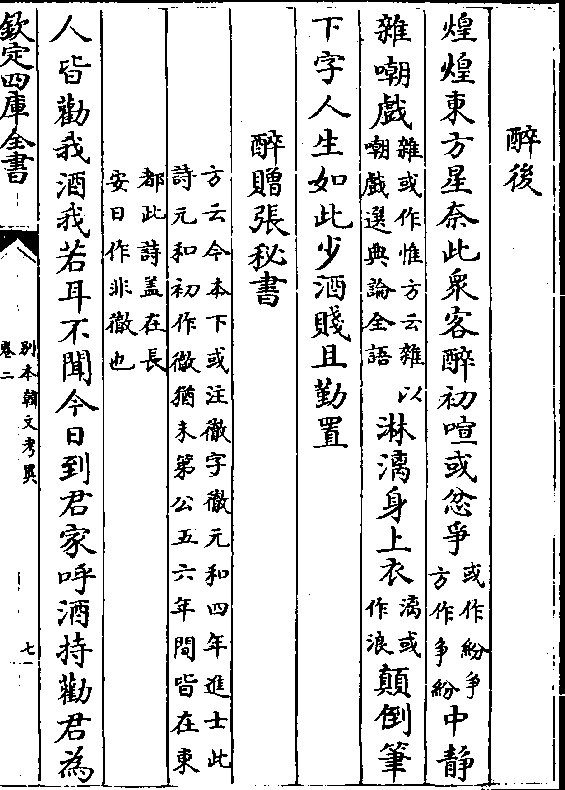 醉後
煌煌東方星奈此衆客醉初喧或忿爭或作紛爭方作爭紛中静
雜嘲戲雜或作惟方云雜嘲戲選典論全語以淋漓身上衣漓或作浪顛倒筆
下字人生如此少酒賤且勤置
醉贈張秘書
方云今本下或注徹字徹元和四年進士此
詩元和初作徹猶未第公五六年間皆在東
都此詩盖在長
安日作非徹也
人皆勸我酒我若耳不聞今日到君家呼酒持勸君為
欽定四庫全書
別本韓文考異
卷二
七